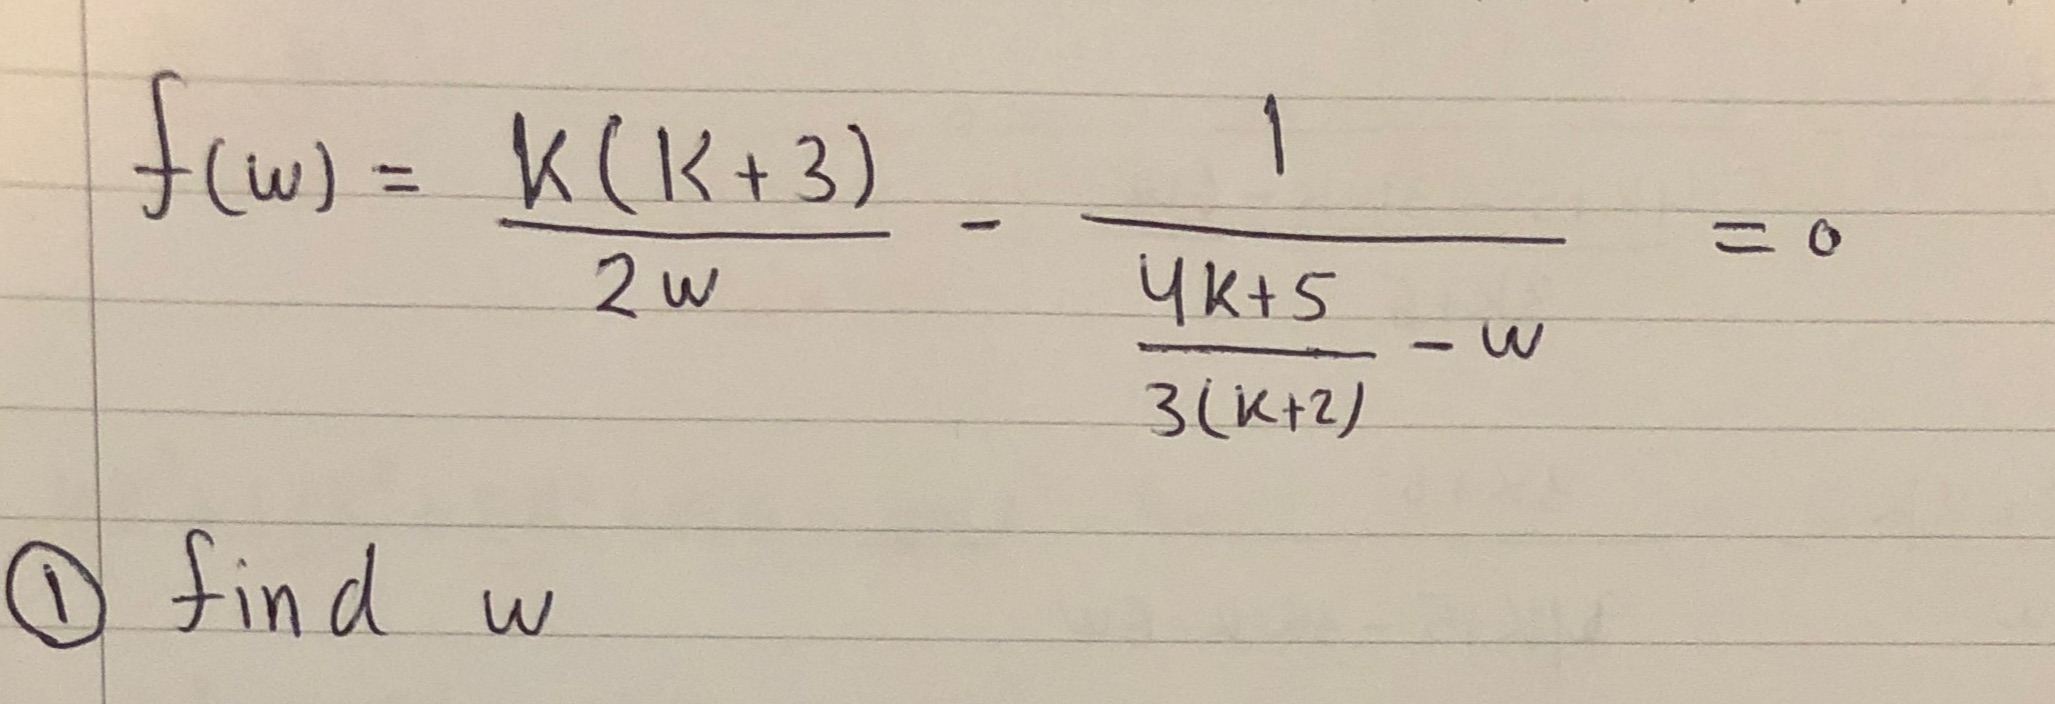 f(w) = K(K+3)/2w - 1/(4K+5/3(K+2) - w) = 0
① find w